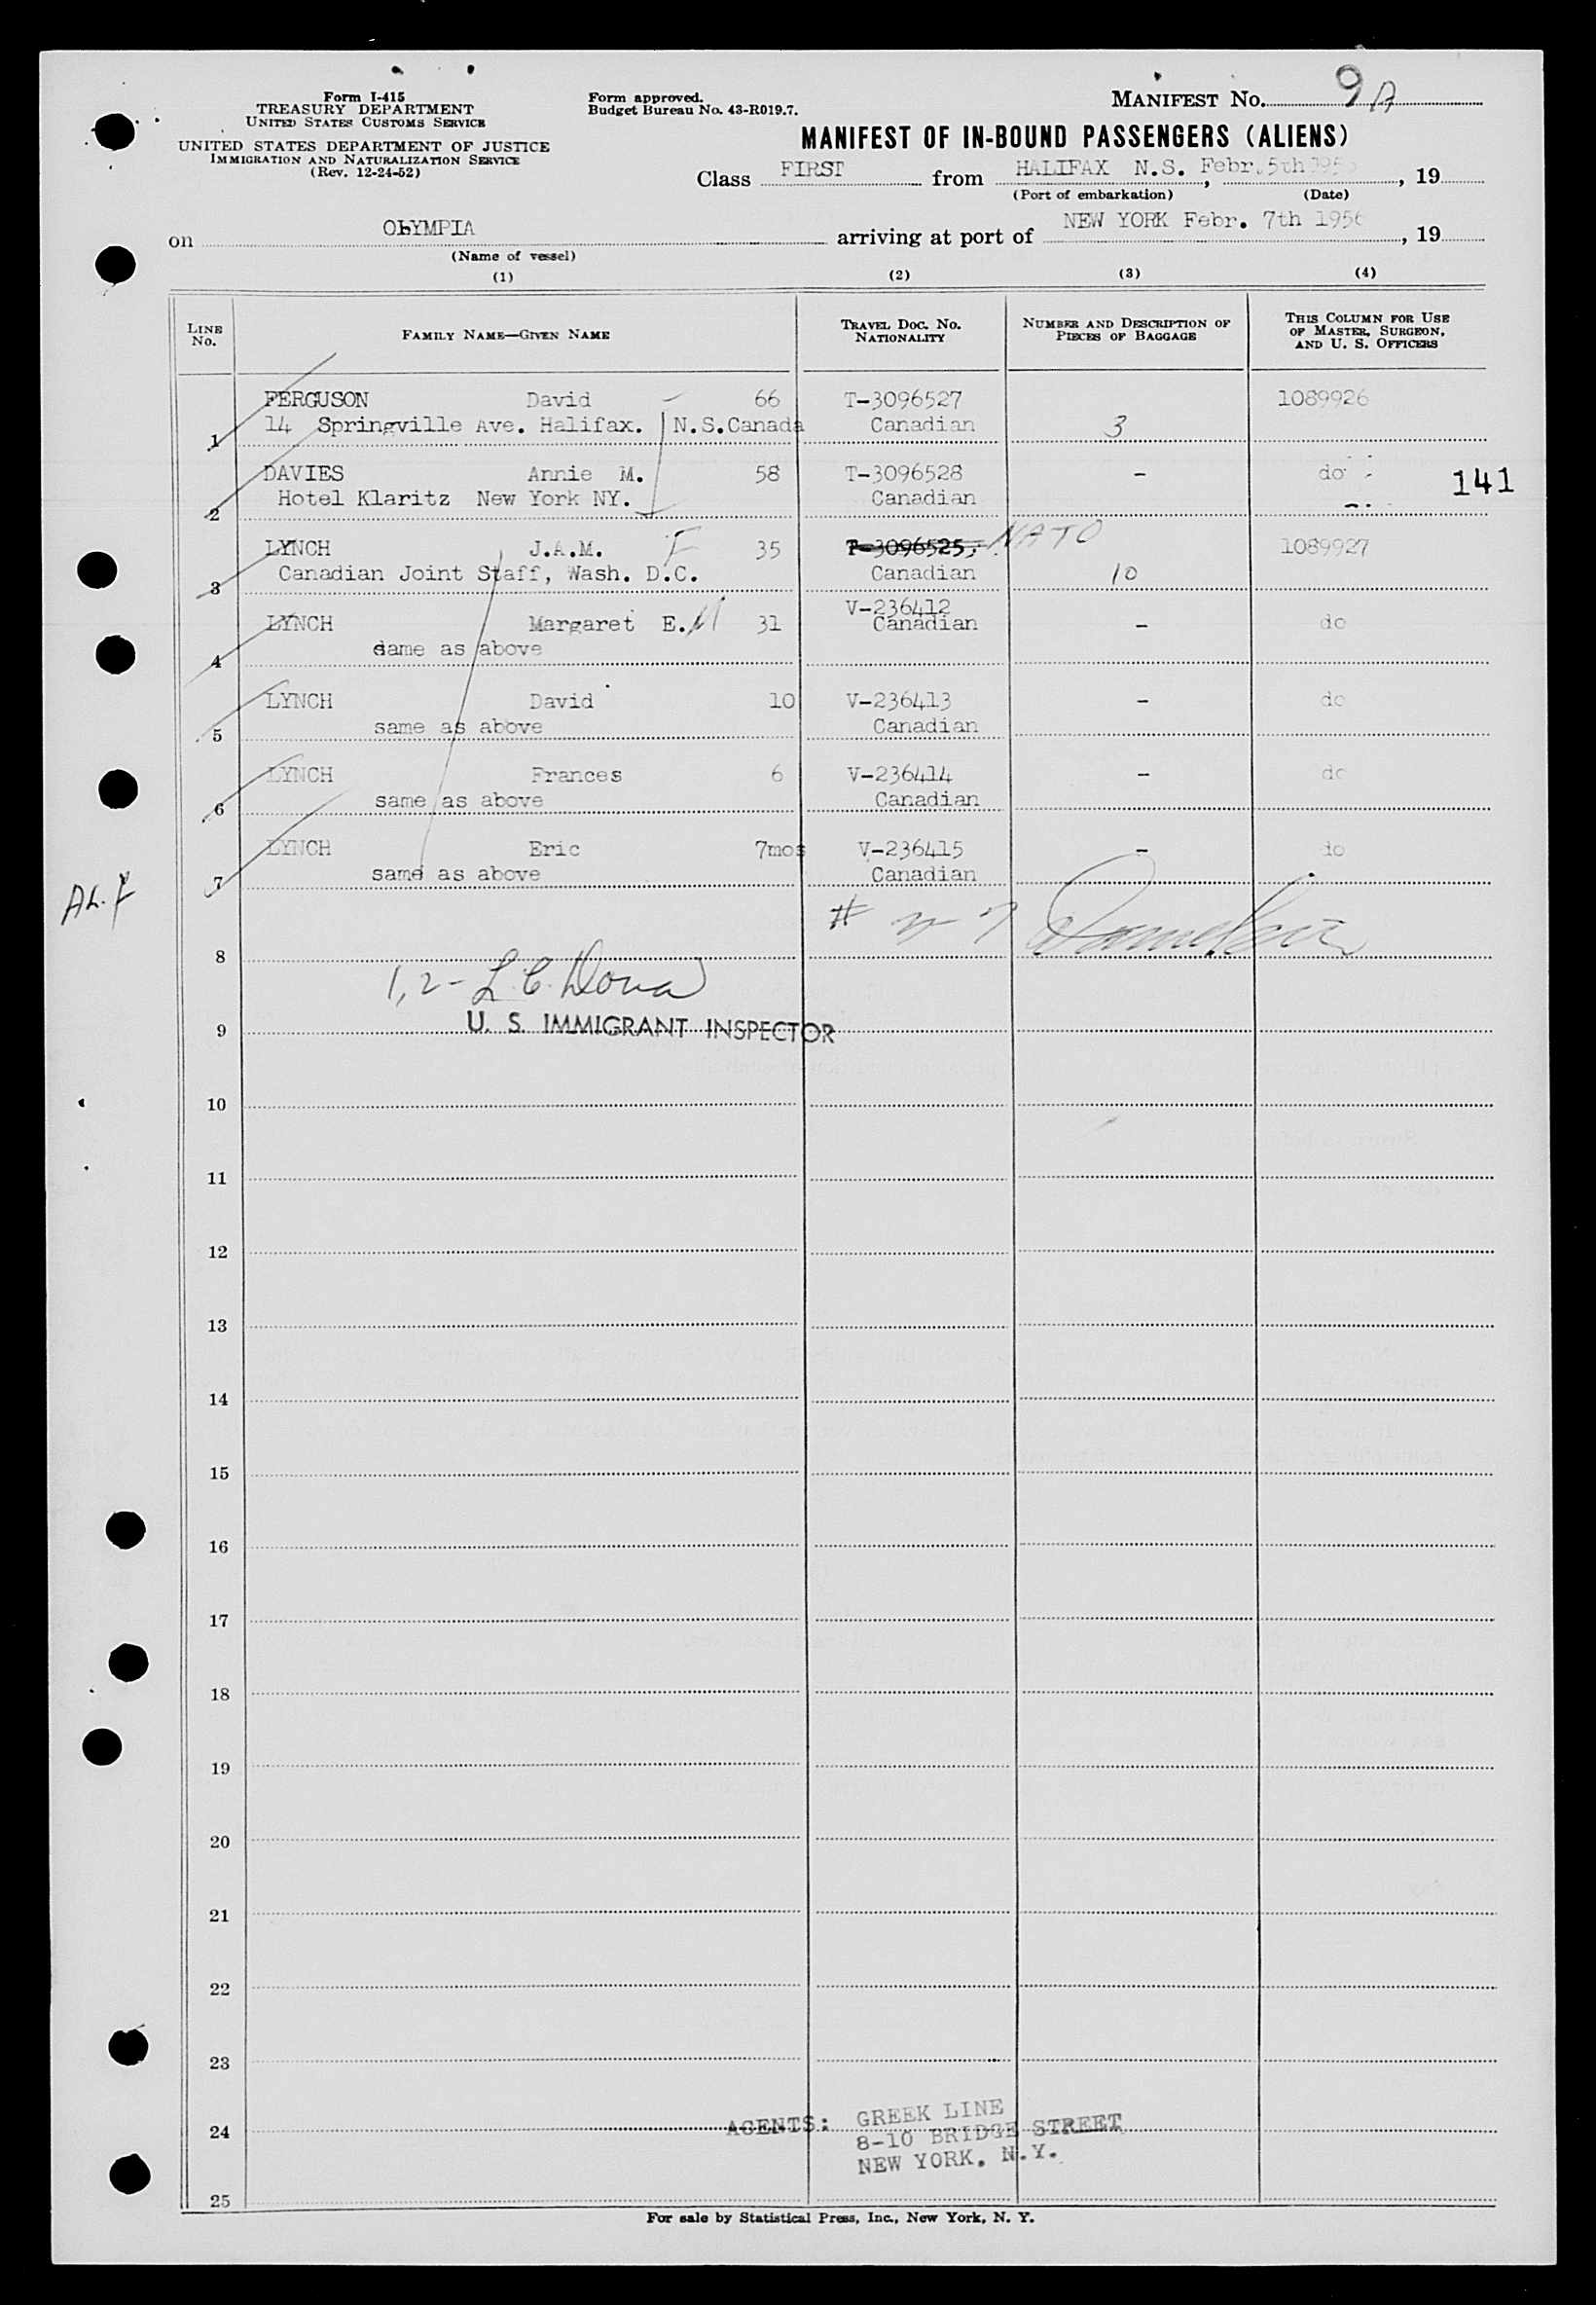 Form I-415
TREASURY DEPARTMENT
UNITED STATES CUSTOMS SERVICE
UNITED STATES DEPARTMENT OF JUSTICE
IMMIGRATION AND NATURALIZATION SERVICE
(Rev. 12-24-52)
Form approved.
Budget Bureau No. 43-R019.7.
MANIFEST No. 9A
MANIFEST OF IN-BOUND PASSENGERS (ALIENS)
Class FIRST from HALIFAX N.S. Febr. 5th 1956, 19
(Port of embarkation) (Date)
on OLYMPIA arriving at port of NEW YORK Febr. 7th 1956, 19
(Name of vessel)
(1) (2) (3) (4)
LINE No. FAMILY NAME—GIVEN NAME TRAVEL DOC. No. NATIONALITY NUMBER AND DESCRIPTION OF PIECES OF BAGGAGE THIS COLUMN FOR USE OF MASTER, SURGEON, AND U. S. OFFICERS
FERGUSON David 66 T-3096527 1089926
1 14 Springville Ave. Halifax. N.S.Canada Canadian 3
DAVIES Annie M. 58 T-3096528 - do 141
2 Hotel Klaritz New York NY. Canadian
LYNCH J.A.M. F 35 T-3096525, NATO 1089927
3 Canadian Joint Staff, Wash. D.C. Canadian 10
V-236412
LYNCH Margaret E. M 31 Canadian - do
4 same as above
LYNCH David 10 V-236413 - do
5 same as above Canadian
LYNCH Frances 6 V-236414 - do
6 same as above Canadian
LYNCH Eric 7mos V-236415 - do
7 same as above Canadian
8
1,2- L.C.
9 U. S. IMMIGRANT INSPECTOR
10
11
12
13
14
15
16
17
18
19
20
21
22
23
24 AGENTS: GREEK LINE
8-10 BRIDGE STREET
NEW YORK. N.Y.
25
For sale by Statistical Press, Inc., New York, N. Y.